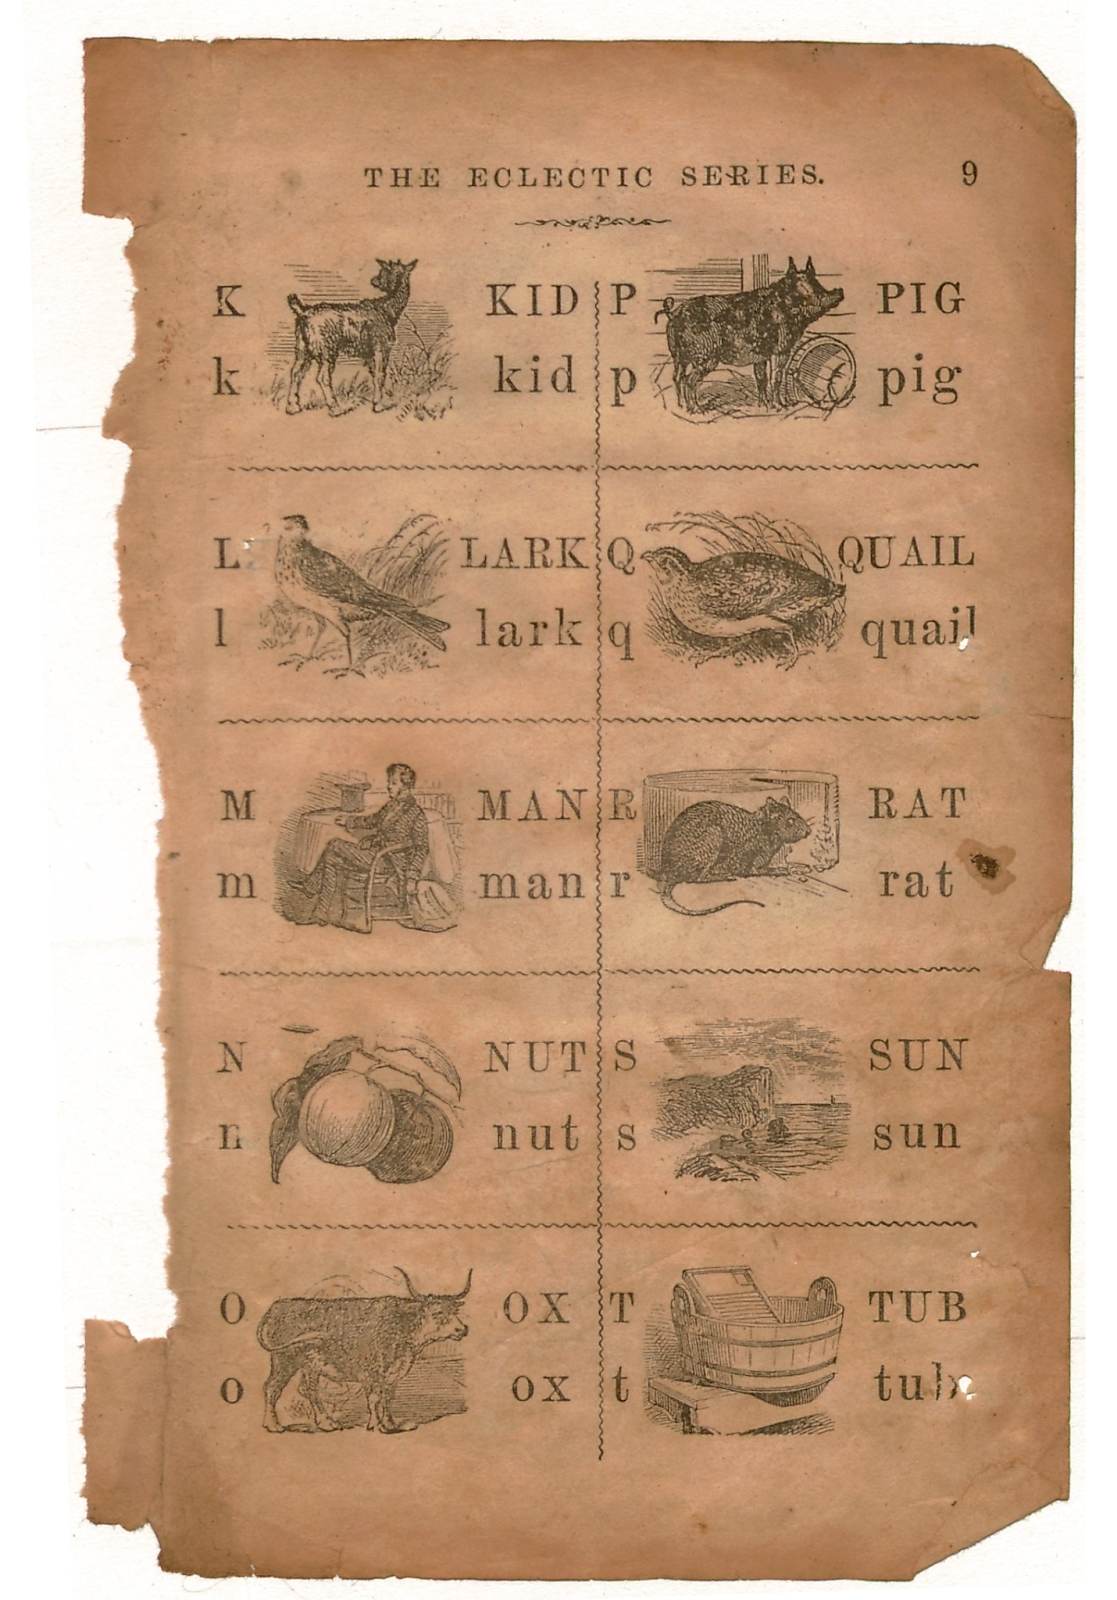 THE ECLECTIC SERIES. 9
K KID
k kid
L LARK
l lark
M MAN
m man
N NUT
n nut
O OX
o ox
P PIG
p pig
Q QUAIL
q quail
R RAT
r rat
S SUN
s sun
T TUB
t tub